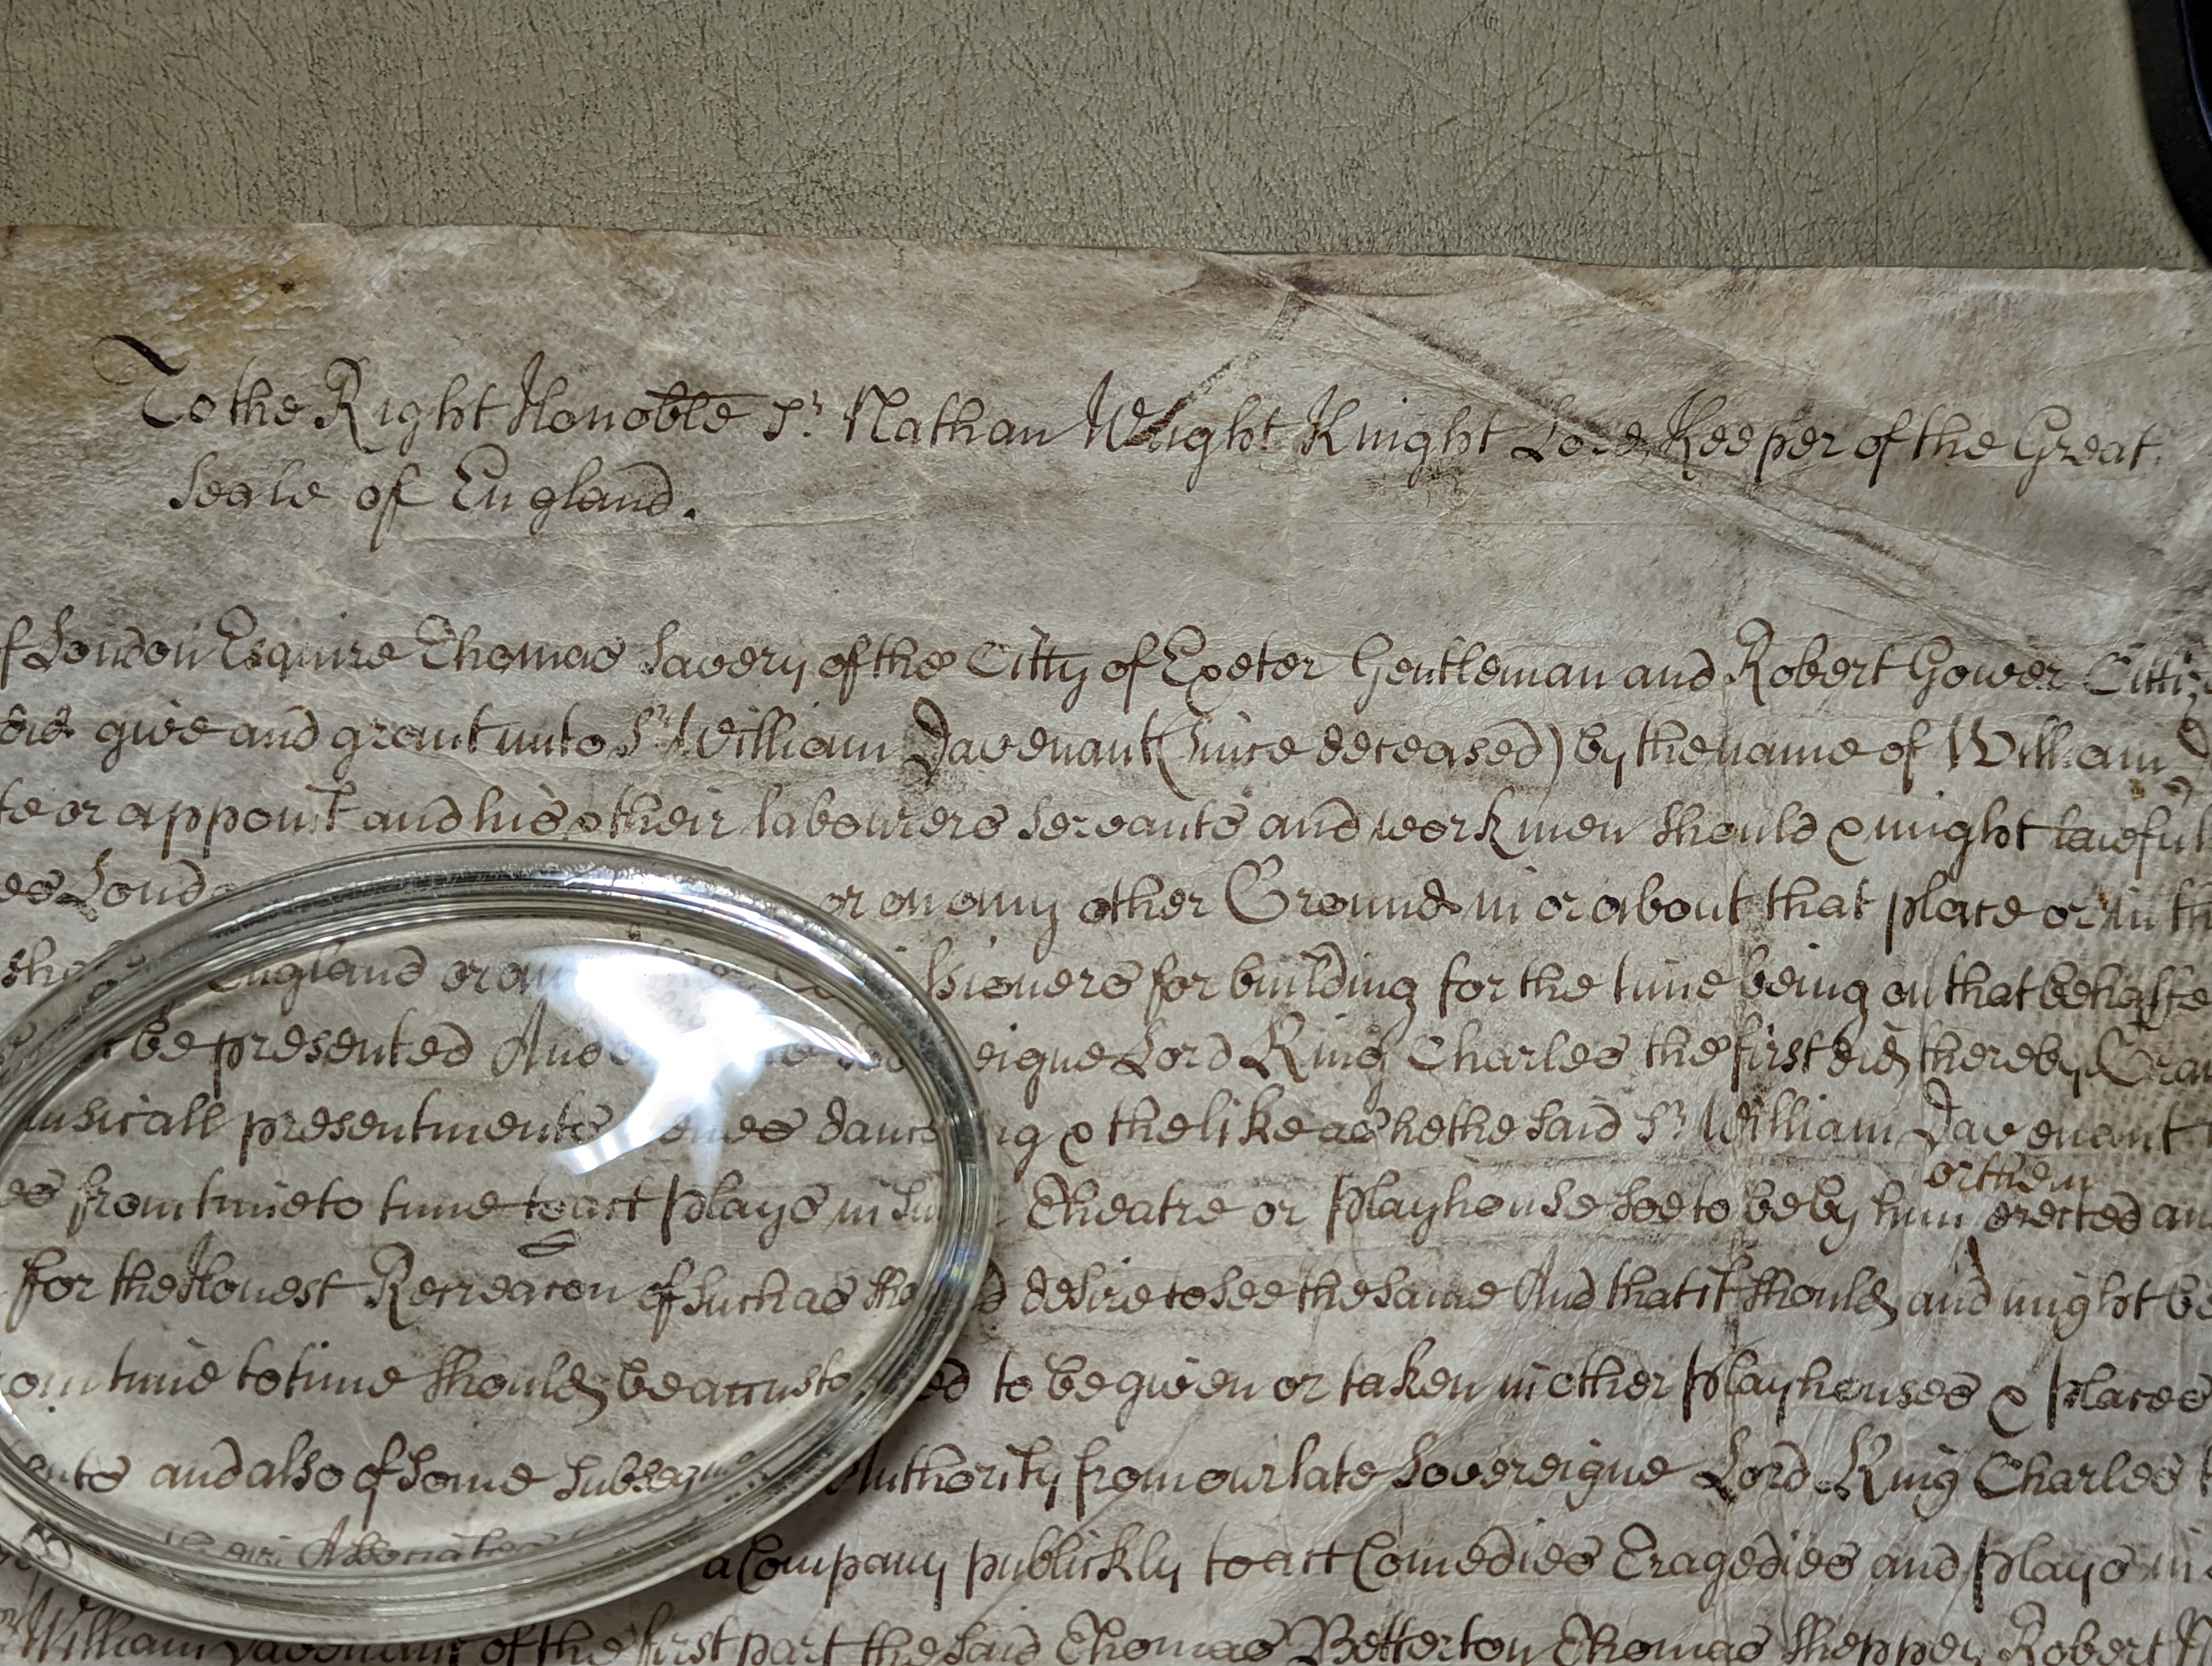 To the Right Honoble Sr. Nathan Wright Knight Lord Keeper of the Great
Seale of England.
of London Esquire Thomas Savery of the Citty of Exeter Gentleman and Robert Gower
did give and grant unto Sr William Davenant (since deceased) by the name of William
or appoint and his & their labourers servants and workmen should & might
or on any other Ground in or about that place or in
England or for building for the time being on that behalfe
be presented Lord King Charles the first did thereby
presentments the like as he the said Sr William Davenant
from time to time to act plays in Theatre or playhouse soe to be by him or them erected
for the Honest Recreacon of such as desire to see the same And that it should and might be
time to time should be to be given or taken in other playhouses & places
and also of some Authority from our late Sovereigne Lord King Charles
Associates a Company publickly to act Comedies Tragedies and plays in
William Davenant of the first part the said Thomas Betterton Thomas Robert